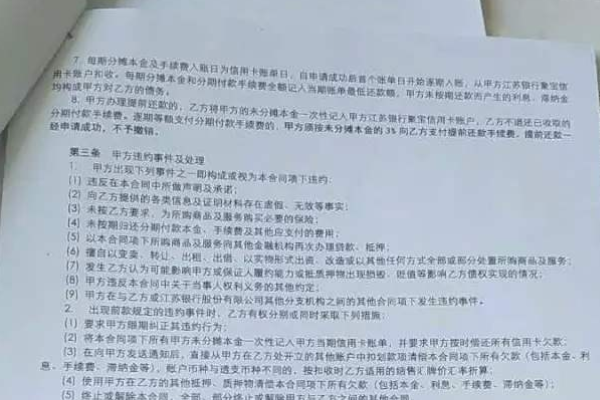 7. 每期分摊本金及手续费入账日为信用卡账单日，自申请成功后首个账单日开始逐期入账，从甲方江苏银行聚宝信
用卡账户扣收。每期分摊本金和分期付款手续费全额记入当期账单最低还款额，甲方未按期还款而产生的利息、滞纳金
均构成甲方对乙方的债务。
8. 甲方办理提前还款的，乙方将甲方的未分摊本金一次性记入甲方江苏银行聚宝信用卡账户，乙方不退还已收取的
分期付款手续费。逐期等额支付分期付款手续费的，甲方须按未分摊本金的3%向乙方支付提前还款手续费。提前还款一
经申请成功，不予撤销。
第三条 甲方违约事件及处理
1. 甲方出现下列事件之一即构成或视为本合同项下违约：
(1) 违反在本合同中所做声明及承诺；
(2) 向乙方提供的各类信息及证明材料存在虚假、无效等事实；
(3) 未按乙方要求，为所购商品及服务购买必要的保险；
(4) 未按期归还分期付款本金、手续费及其他应支付的费用；
(5) 以本合同项下所购商品及服务向其他金融机构再次办理贷款、抵押；
(6) 擅自以变卖、转让、出租、出借、以实物形式出资、改造或以其他任何方式全部或部分处置所购商品及服务；
(7) 发生乙方认为可能影响甲方或保证人履约能力或抵质押物出现毁损、贬值等影响乙方债权实现的情况；
(8) 甲方违反本合同中关于当事人权利义务的其他约定；
(9) 甲方在与乙方或江苏银行股份有限公司其他分支机构之间的其他合同项下发生违约事件。
2. 出现前款规定的违约事件时，乙方有权分别或同时采取下列措施：
(1) 要求甲方限期纠正其违约行为；
(2) 将本合同项下所有甲方未分摊本金一次性记入甲方当期信用卡账单，并要求甲方按时偿还所有信用卡欠款；
(3) 在向甲方发送通知后，直接从甲方在乙方处开立的其他账户中扣划款项清偿本合同项下所有欠款（包括本金、利
息、手续费、滞纳金等），账户币种与透支币种不同的，按扣收时乙方适用的结售汇牌价汇率折算；
(4) 使用甲方在乙方的其他抵押、质押物清偿本合同项下所有欠款（包括本金、利息、手续费、滞纳金等）；
(5) 终止或解除本合同，全部、部分终止或解除甲方与乙方之间的其他合同